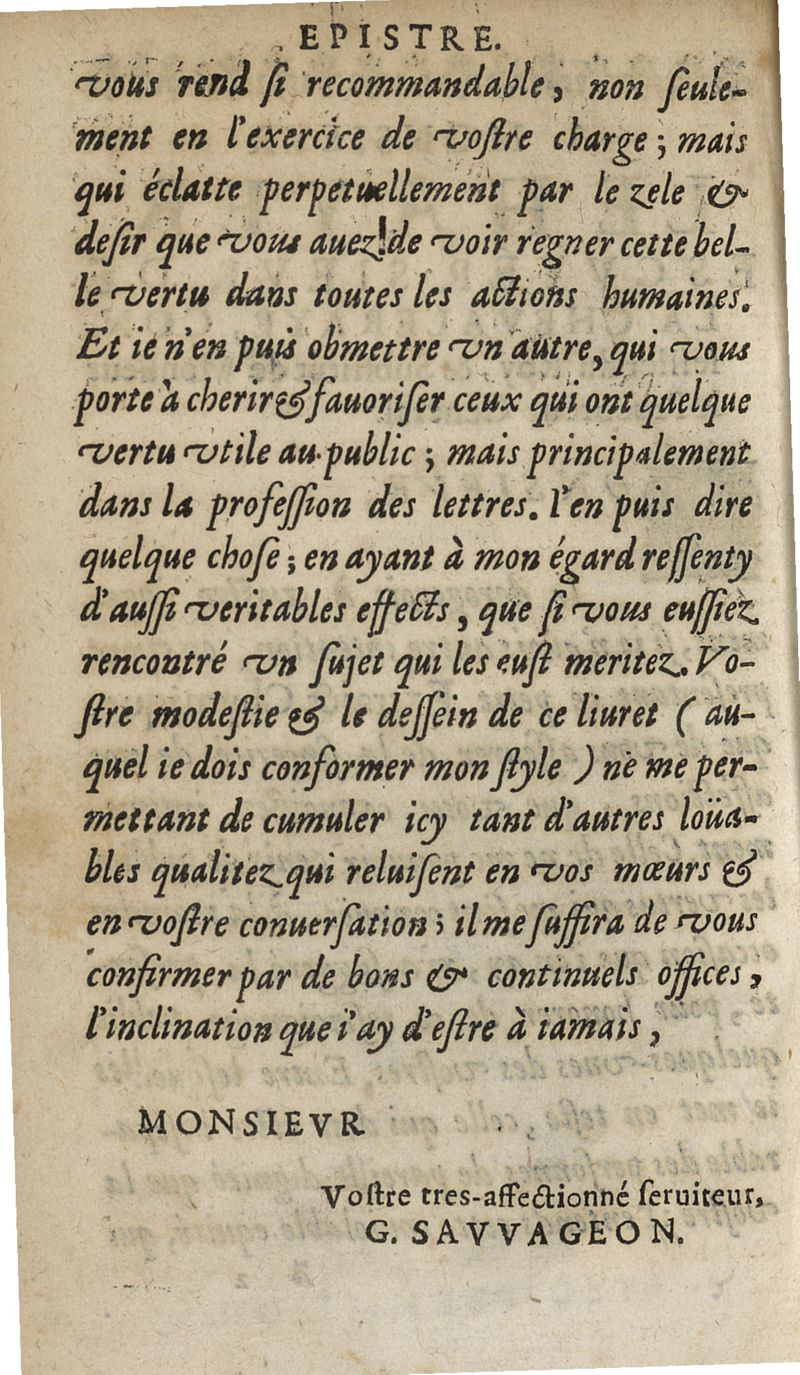 EPISTRE.
vous rend ſi recommandable, non ſeule-
ment en l'exercice de voſtre charge; mais
qui éclatte perpetuellement par le zele &
deſir que vous auez de voir regner cette bel-
le vertu dans toutes les actions humaines.
Et ie n'en puis obmettre vn autre, qui vous
porte à cherir & fauoriſer ceux qui ont quelque
vertu vtile au public; mais principalement
dans la profeſſion des lettres. I'en puis dire
quelque choſe; en ayant à mon égard reſſenty
d'auſſi veritables effects, que ſi vous euſſiez
rencontré vn ſujet qui les euſt meritez. Vo-
ſtre modeſtie & le deſſein de ce liuret (au-
quel ie dois conformer mon ſtyle) ne me per-
mettant de cumuler icy tant d'autres loüa-
bles qualitez qui reluiſent en vos mœurs &
en voſtre conuerſation; il me ſuffira de vous
confirmer par de bons & continuels offices,
l'inclination que i'ay d'eſtre à iamais,
MONSIEVR
Voſtre tres-affectionné ſeruiteur,
G. SAVVAGEON.